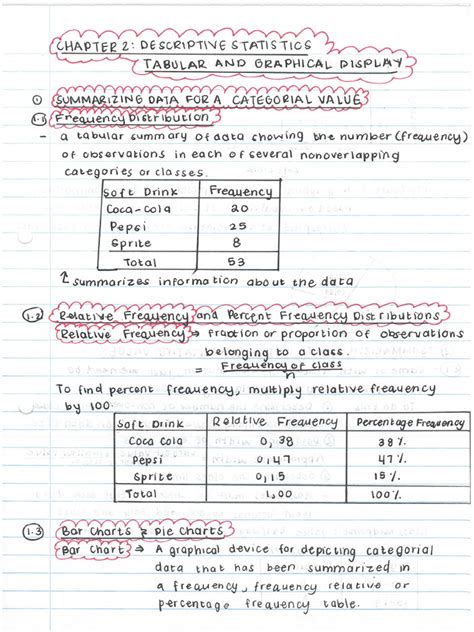 CHAPTER 2: DESCRIPTIVE STATISTICS
TABULAR AND GRAPHICAL DISPLAY
① SUMMARIZING DATA FOR A CATEGORIAL VALUE
1.1 Frequency Distribution
- a tabular summary of data showing the number (frequency)
of observations in each of several nonoverlapping
categories or classes.
Soft Drink Frequency
Coca-Cola 20
Pepsi 25
Sprite 8
Total 53
↑ summarizes information about the data
1.2 Relative Frequency and Percent Frequency Distributions
Relative Frequency ⇒ fraction or proportion of observations
belonging to a class.
= Frequency of class
n
To find percent frequency, multiply relative frequency
by 100.
Soft Drink Relative Frequency Percentage Frequency
Coca cola 0,38 38%
Pepsi 0,47 47%
Sprite 0,15 15%
Total 1,00 100%
1.3 Bar Charts & Pie Charts
Bar Chart ⇒ A graphical device for depicting categorial
data that has been summarized in
a frequency, frequency relative or
percentage frequency table.